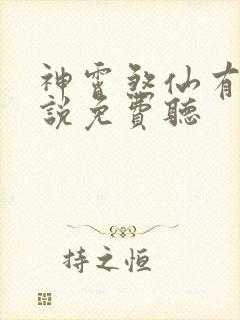 神霄煞仙有
說免費聽
持之恒